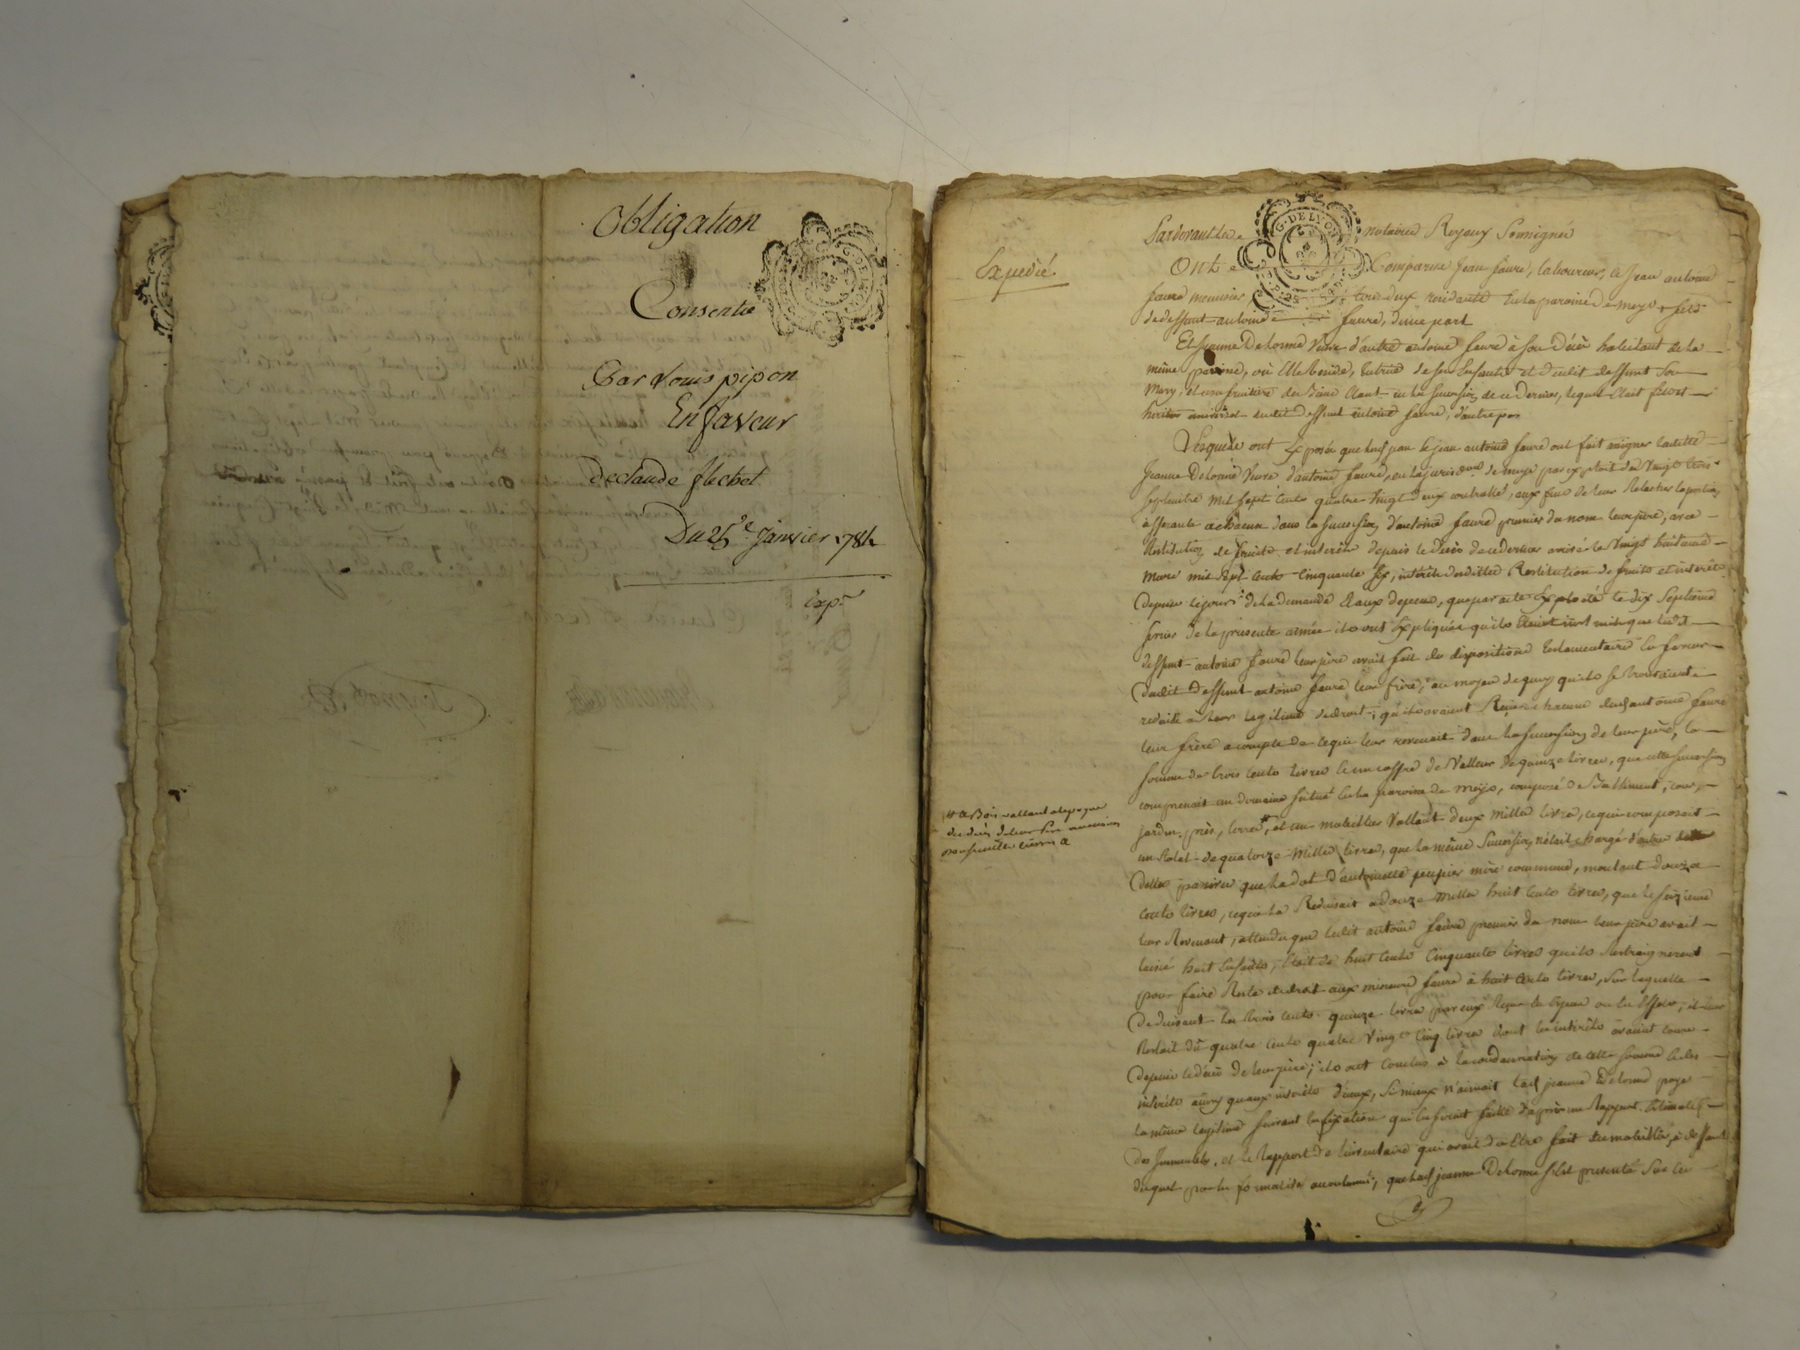 Obligation
Consentie
Par Louis pipon
En faveur
de claude flechet
Du 25e Janvier 1784
Exp.
G. DE LYON
Expedié
Pardevant les notaires Royaux Soussignés
Ont Comparu Jean faure, laboureur, et Jean antoine
faure meunier, tous deux residants en la paroisse de meys, fils
de deffunt antoine faure, d'une part
Et Jeanne Delorme Veuve d'autre antoine faure à son Décès habitant de la
même paroisse, où Elle Reside, tutrice de ses Enfants et dudit deffunt son
Mary, et usufruitiere des biens étant en la succession de ce Dernier, lequel était
heritier universel dudit deffunt antoine faure, d'autre part
Lesquels ont Exposés que lesd. jean et jean antoine faure ont fait assigner ladite
Jeanne Delorme Veuve d'antoine faure, en la jurisdon de meys par exploit du Vingt trois
Septembre Mil Sept Cents quatre Vingt deux controllé, aux fins de leur Relacher la portion
afferante a chacun dans la succession d'antoine faure premier du nom leur père, avec
Restitution de fruits et interets depuis le Décès de ce dernier arrivé le Vingt huit
Mars mil Sept Cents Cinquante Six, interets desdittes Restitution de fruits et interets
Depuis le jour de la demande et aux depens, que par acte Exploité le dix Septieme
de la presente année ils ont Expliqués qu'ils que ledit
deffunt antoine faure leur père avait fait des dispositions testamentaires En faveur
Dudit Deffunt antoine faure leur frère, au moyen de quoy qu'ils se trouvaient
reduits a leur legitime de droit, qu'ils avaient Reçus chacun dud. antoine faure
leur frère a compte de ce qui leur revenait dans la succession de leur père, la
somme de trois Cents livres et un coffre de Valleur de quinze livres, que cette succession
comprenait un domaine situé en la paroisse de meys, composé de Batiment, cour,
jardin, près, terres, et un mobillier Vallant deux Mille livres, ce qui composait
un total de quatorze Mille livres, que la même Succession n'était chargé d'autre
dettes passives que la dot d'antoinette peupier mère commune, montant douze
Cents livres, ce qui la Reduisait a douze Mille huit Cents livres, que le seizieme
leur Revenant, attendu que ledit antoine faure premier du nom leur père avait
laissé huit Enfants, était de huit Cents Cinquante livres qu'ils Restraignerent
pour faire Reste de droit aux mineurs faure à huit Cents livres, sur laquelle
Deduisant les trois Cents quinze livres par eux Reçus En Especes ou En Effets, il leur
Restait Dû quatre Cents quatre Vingt Cinq livres dont les intérêts avaient couru
Depuis le décès de leur père; ils ont Conclus à la condamnation de cette somme et des
intérêts ainsy qu'aux intérêts d'iceux, si mieux n'aimait lad. jeanne Delorme payer
la même legitime suivant la fixation qui En serait faitte d'après un Rapport Estimatif
des Immeubles, et le Rapport de l'inventaire qui avait dû Etre fait du mobillier, à deffaut
duquel par la , que lad. jeanne Delorme s'est presentée sur
# et Bois vallant a l'epoque
du décès de leur père